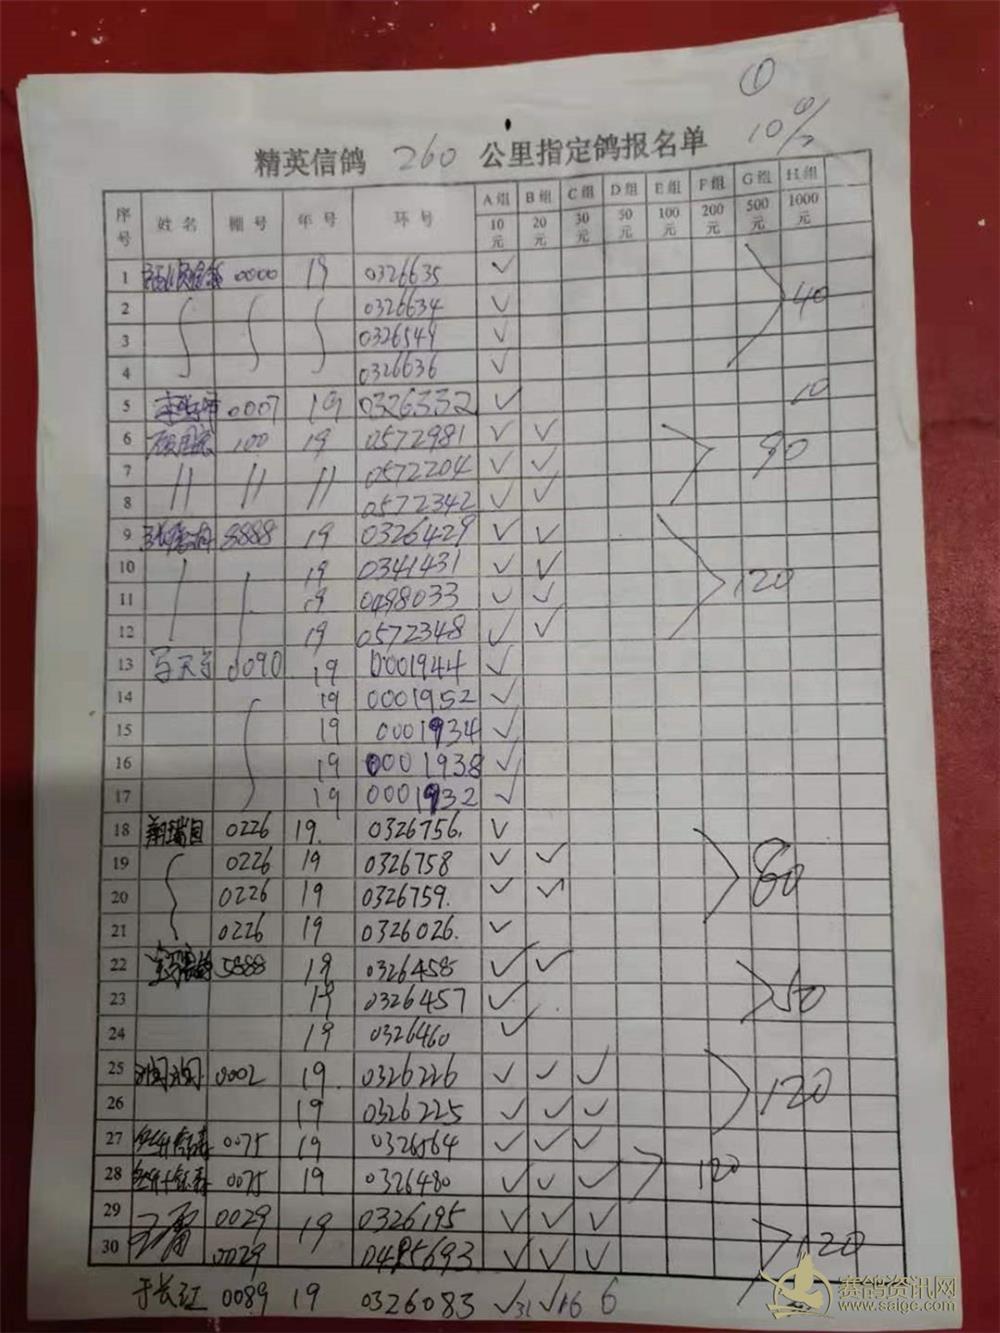 ①
10%
精英信鸽 260 公里指定鸽报名单
序号 姓名 棚号 年号 环号 A组 B组 C组 D组 E组 F组 G组 H组
10元 20元 30元 50元 100元 200元 500元 1000元
1 0000 19 0326635 ✓
2 0326634 ✓ 40
3 0326549 ✓
4 0326636 ✓
5 0007 19 0326332 ✓ 10
6 100 19 0572981 ✓ ✓
7 〃 〃 〃 0572204 ✓ ✓ 90
8 0572342 ✓ ✓
9 8888 19 0326429 ✓ ✓
10 19 0341431 ✓ ✓
11 19 0498033 ✓ ✓ 120
12 19 0572348 ✓ ✓
13 0090 19 0001944 ✓
14 19 0001952 ✓
15 19 0001934 ✓
16 19 0001938 ✓
17 19 0001932 ✓
18 翱瑞园 0226 19. 0326756. ✓
19 0226 19 0326758 ✓ ✓ 80
20 0226 19 0326759. ✓ ✓
21 0226 19 0326026. ✓
22 5888 19 0326458 ✓ ✓
23 19 0326457 ✓ 50
24 19 0326460 ✓
25 0002 19. 0326226 ✓ ✓ ✓
26 19 0326225 ✓ ✓ ✓ 120
27 0075 19 0326564 ✓ ✓ ✓
28 0075 19 0326480 ✓ ✓ ✓ 120
29 0029 19 0326195 ✓ ✓ ✓
30 0029 0485693 ✓ ✓ ✓ 120
于长红 0089 19 0326083 ✓31 ✓16 6
赛鸽资讯网
www.saigc.com